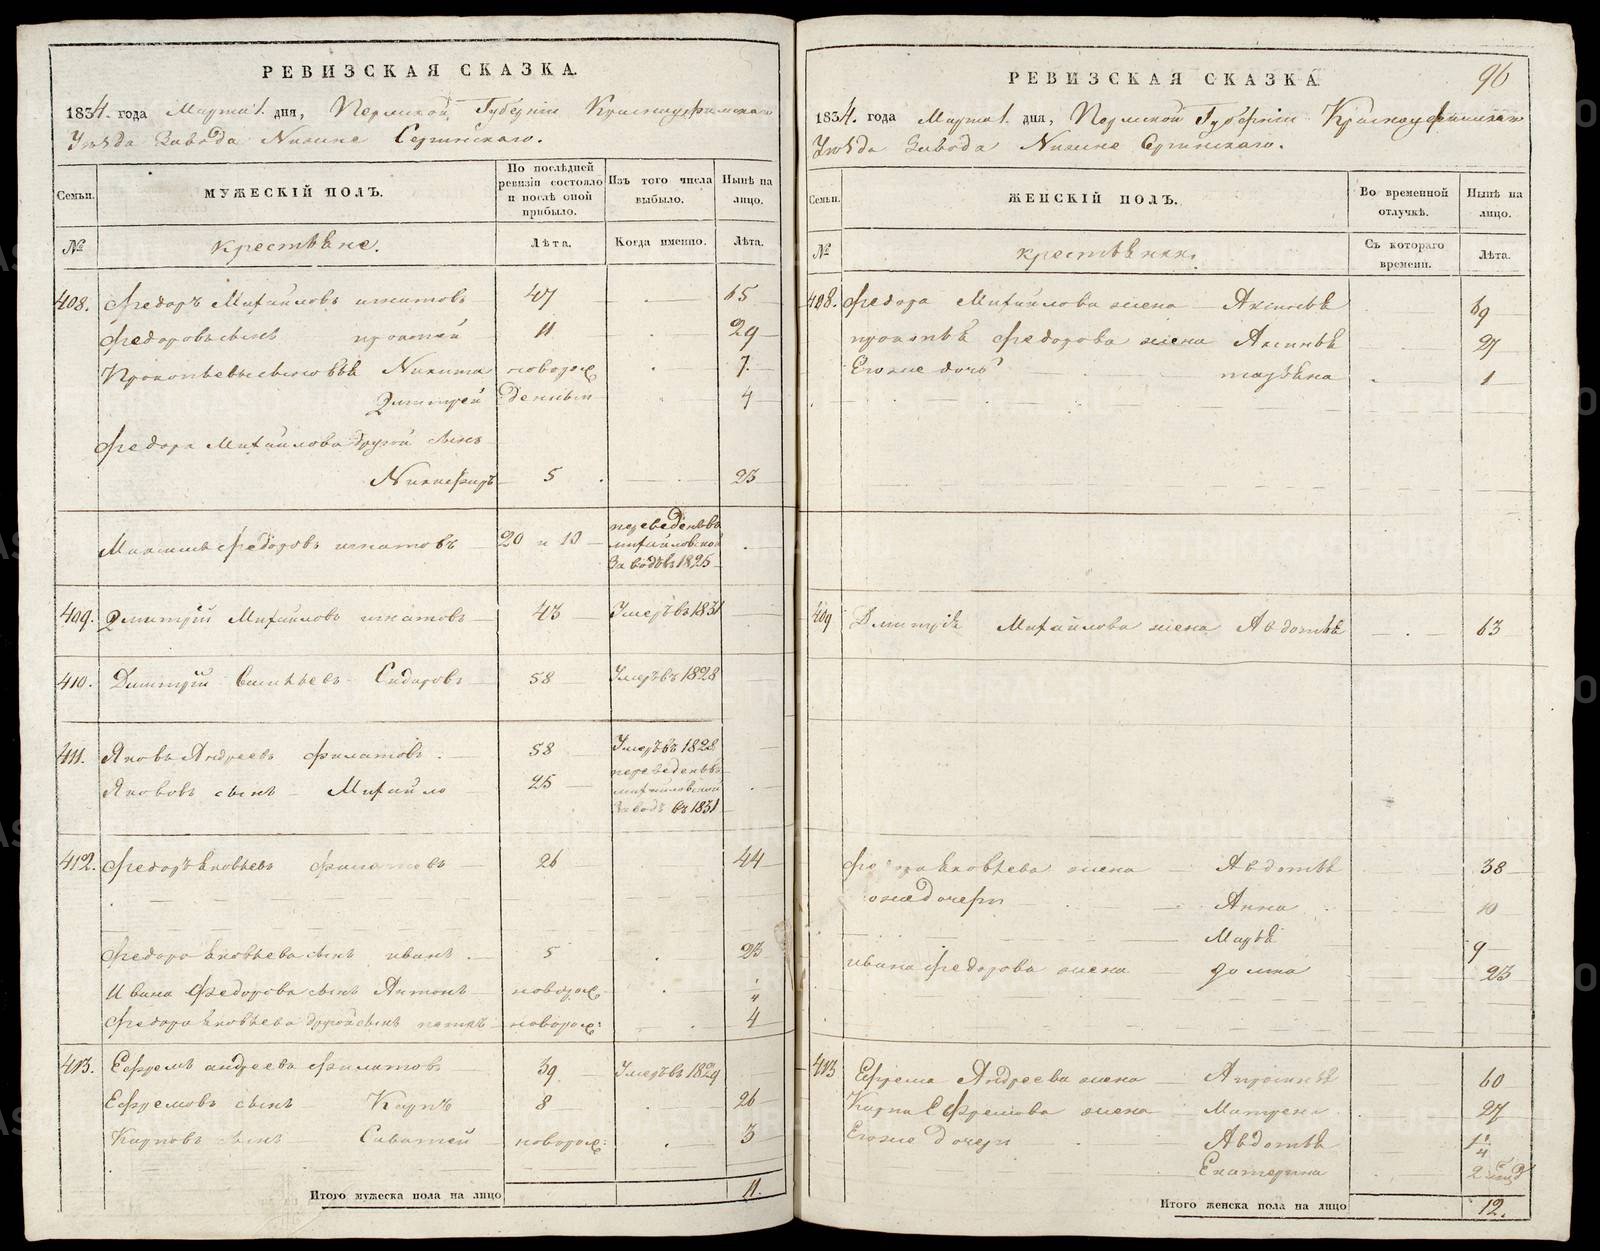 РЕВИЗСКАЯ СКАЗКА.
1834. года Марта 1. дня, Пермской Губерніи Красноуфимскаго
Уѣзда Завода Нижне Сергинскаго.
Семьи.
МУЖЕСКІЙ ПОЛЪ.
По послѣдней ревизіи состояло и послѣ оной прибыло.
Изъ того числа выбыло.
Нынѣ на лицо.
№
крестьяне.
Лѣта.
Когда именно.
Лѣта.
408. Федоръ Михайловъ Игнатовъ 47 65
Федоровъ сынъ прокопій 11 29
Прокопьевы сыновья Никита новорож 7.
Дмитрей денныи 4
Федора Михайлова другой сынъ
Никифоръ 5 23
Максимъ Федоровъ игнатовъ 20 и 10 переведенъ въ
михайловской
заводъ въ 1825
409. Дмитрій Михайловъ игнатовъ 43 Умеръ въ 1831
410. Дмитрій Васильевъ Сидоровъ 58 Умеръ въ 1828
411. Яковъ Андреевъ Филатовъ. 58 Умеръ въ 1828
Яковов сынъ Михайло 25 переведенъ въ
михайловской
заводъ въ 1831
412. Федоръ яковлевъ филатовъ 26 44
Федора яковлева сынъ иванъ 5 23
Ивана Федорова сынъ Антонъ новорож 1/4
Федора яковлева другой сынъ новорож: 4
413. Ефремъ андреевъ филатовъ 39 Умеръ въ 1829
Ефремовъ сынъ Карпъ 8 26
Карповъ сынъ Саватей новорож: 3
Итого мужеска пола на лицо 11.
96
РЕВИЗСКАЯ СКАЗКА
1834. года Марта 1. дня, Пермской Губерніи Красноуфимскаго
Уѣзда Завода Нижне Сергинскаго.
Семьи.
ЖЕНСКІЙ ПОЛЪ.
Во временной отлучкѣ.
Нынѣ на лицо.
№
крестьянки.
Съ котораго времени.
Лѣта.
408. Федора Михайлова жена Аксинья 69
прокопья Федорова жена Аксинья 27
Его же дочь 1
409 Дмитрія Михайлова жена Авдотья 63
Федора яковлева жена Авдотья 38
дочери Анна 10
Марья 9
ивана федорова жена домна 23
413 Ефрема Андреева жена 60
Карпа Ефремова жена Матрена 27
Его же дочери Авдотья 1 1/4
Екатерина 2
Итого женска пола на лицо 12.